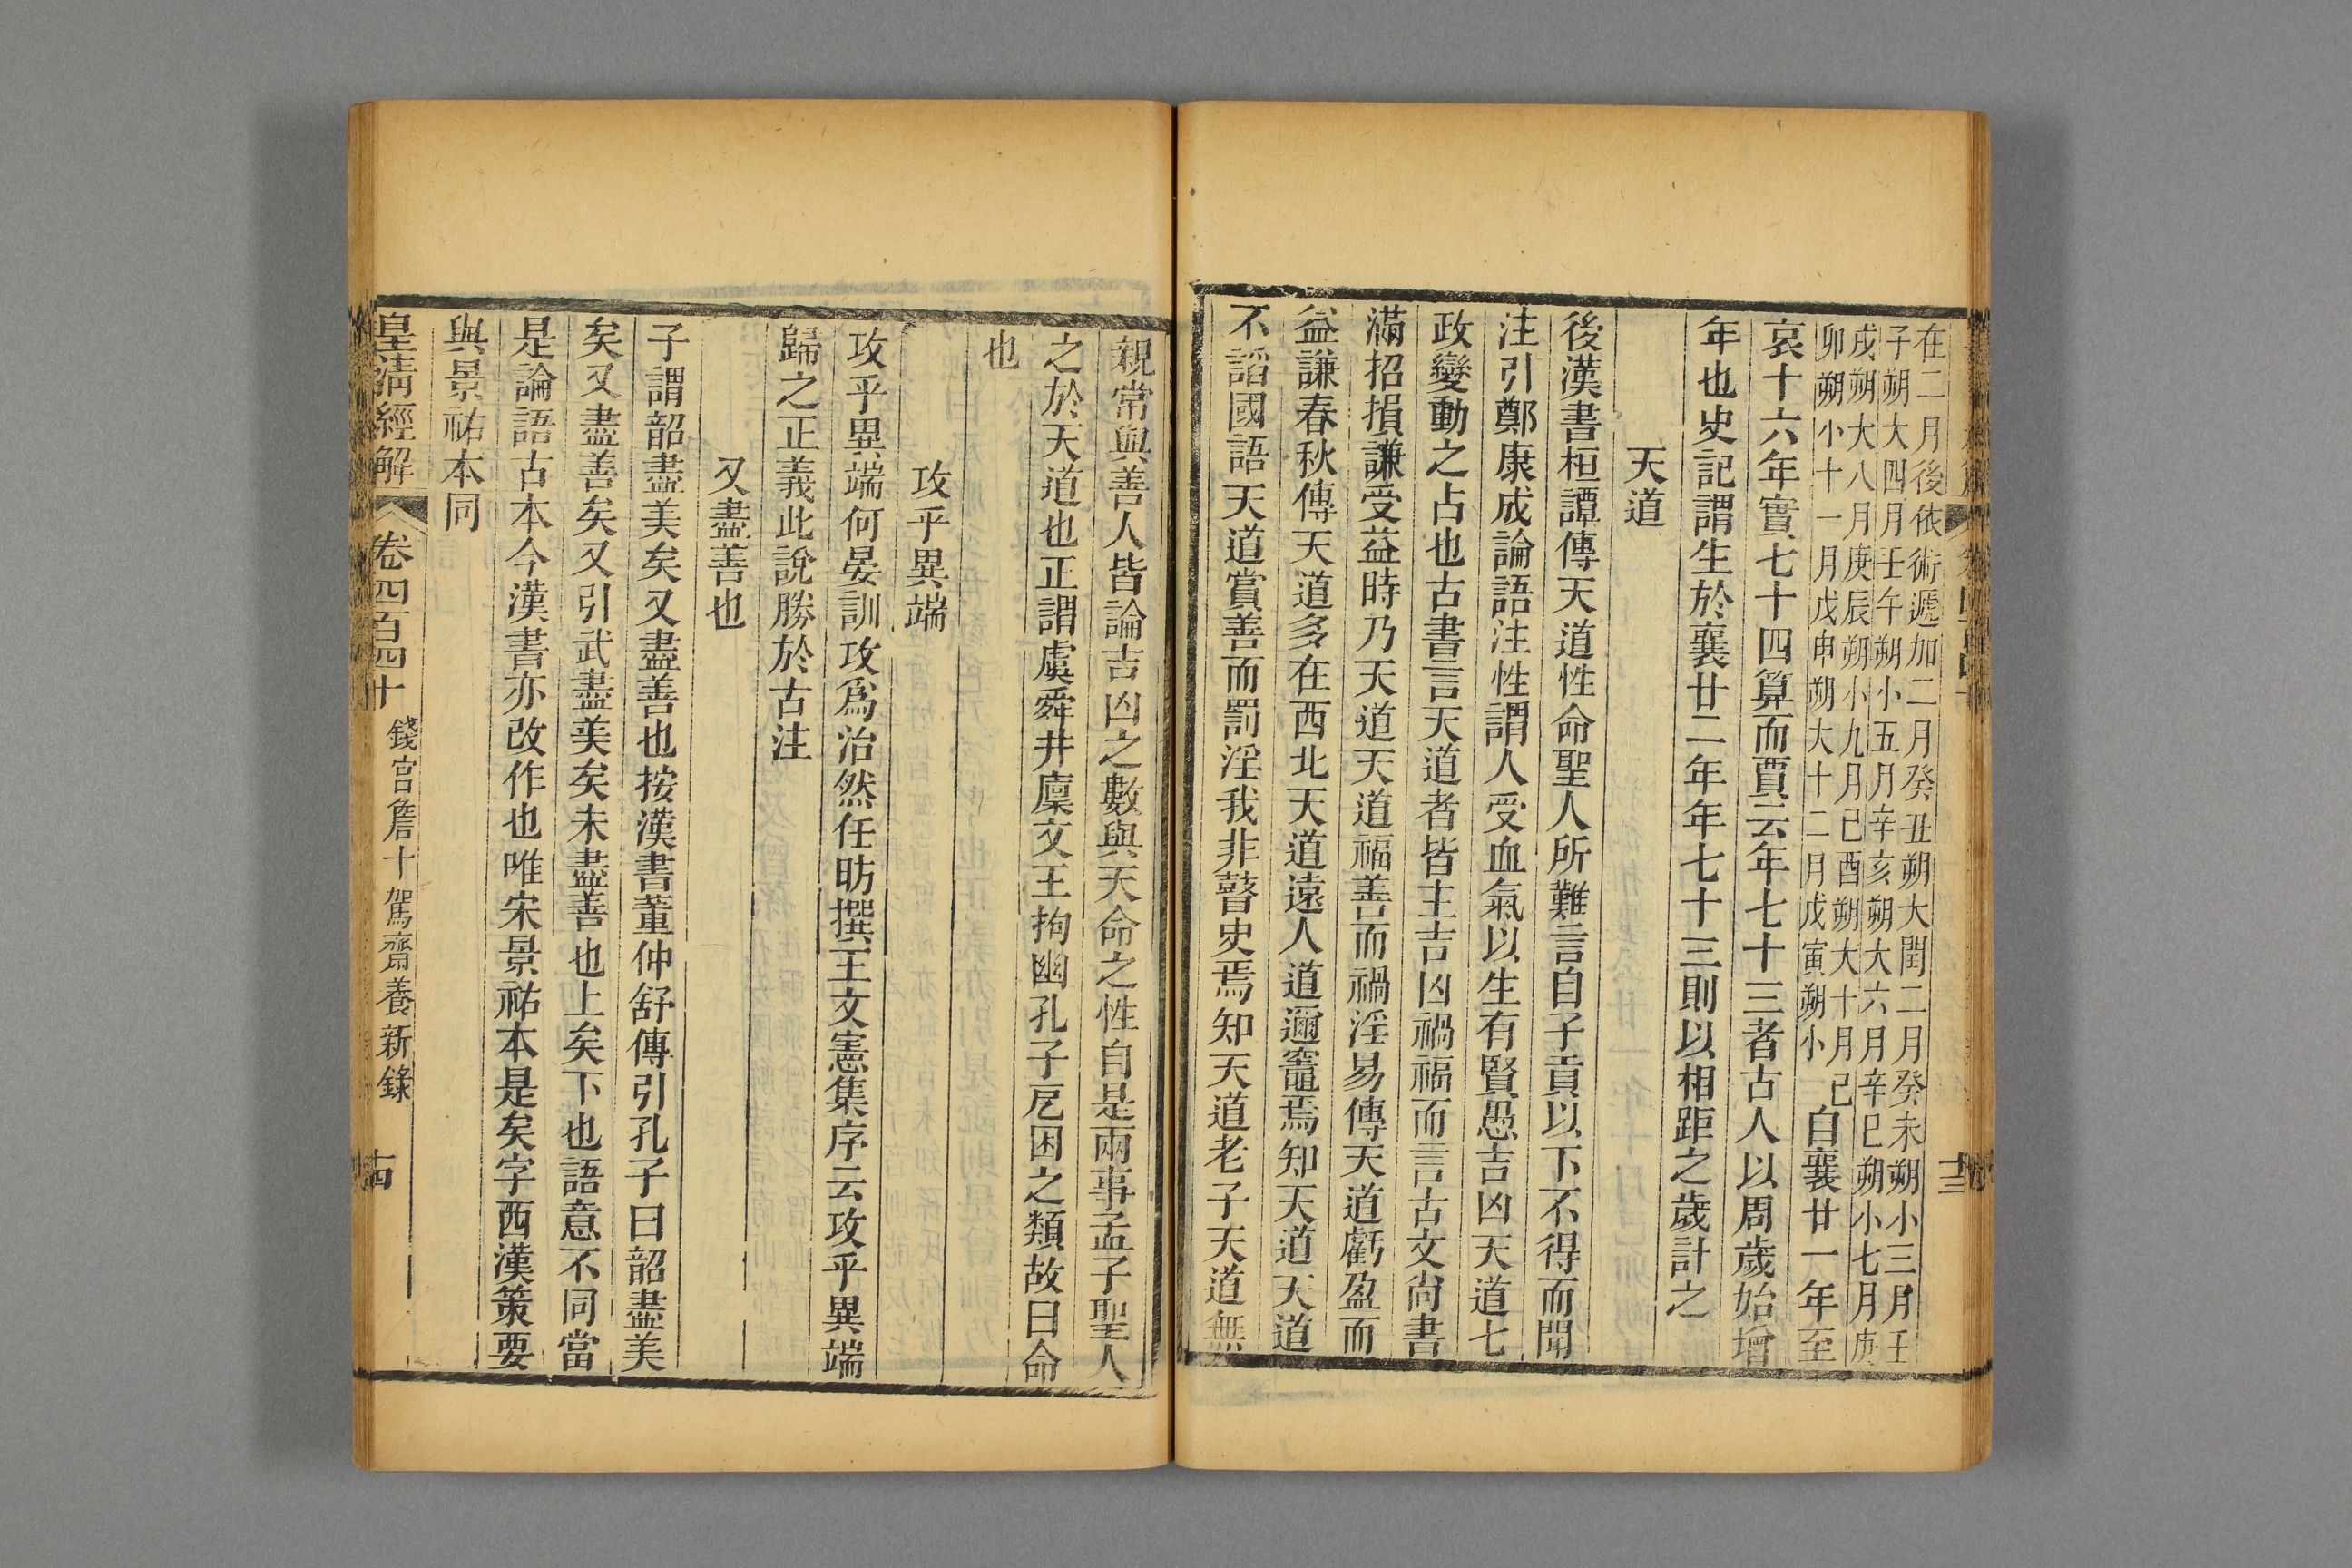 在二月後依術遞加二月癸丑朔大閏二月癸未朔小三月壬
子朔大四月壬午朔小五月辛亥朔大六月辛巳朔小七月庚
戌朔大八月庚辰朔小九月己酉朔大十月己
卯朔小十一月戊申朔大十二月戊寅朔小
自襄廿一年至
哀十六年實七十四算而賈云年七十三者古人以周歲始增
年也史記謂生於襄廿二年年七十三則以相距之歲計之
天道
後漢書桓譚傳天道性命聖人所難言自子貢以下不得而聞
注引鄭康成論語注性謂人受血氣以生有賢愚吉凶天道七
政變動之占也古書言天道者皆主吉凶禍福而言古文尚書
滿招損謙受益時乃天道天道福善而禍淫易傳天道虧盈而
益謙春秋傳天道多在西北天道遠人道邇竈焉知天道天道
不謟國語天道賞善而罰淫我非瞽史焉知天道老子天道無
十三
親常與善人皆論吉凶之數與天命之性自是兩事孟子聖人
之於天道也正謂虞舜井廩文王拘幽孔子戹困之類故曰命
也
攻乎異端
攻乎異端何晏訓攻爲治然任昉撰王文憲集序云攻乎異端
歸之正義此說勝於古注
又盡善也
子謂韶盡美矣又盡善也按漢書董仲舒傳引孔子曰韶盡美
矣又盡善矣又引武盡美矣未盡善也上矣下也語意不同當
是論語古本今漢書亦改作也唯宋景祐本是矣字西漢策要
與景祐本同
皇清經解 卷四百四十 錢宮詹十駕齋養新錄 十四